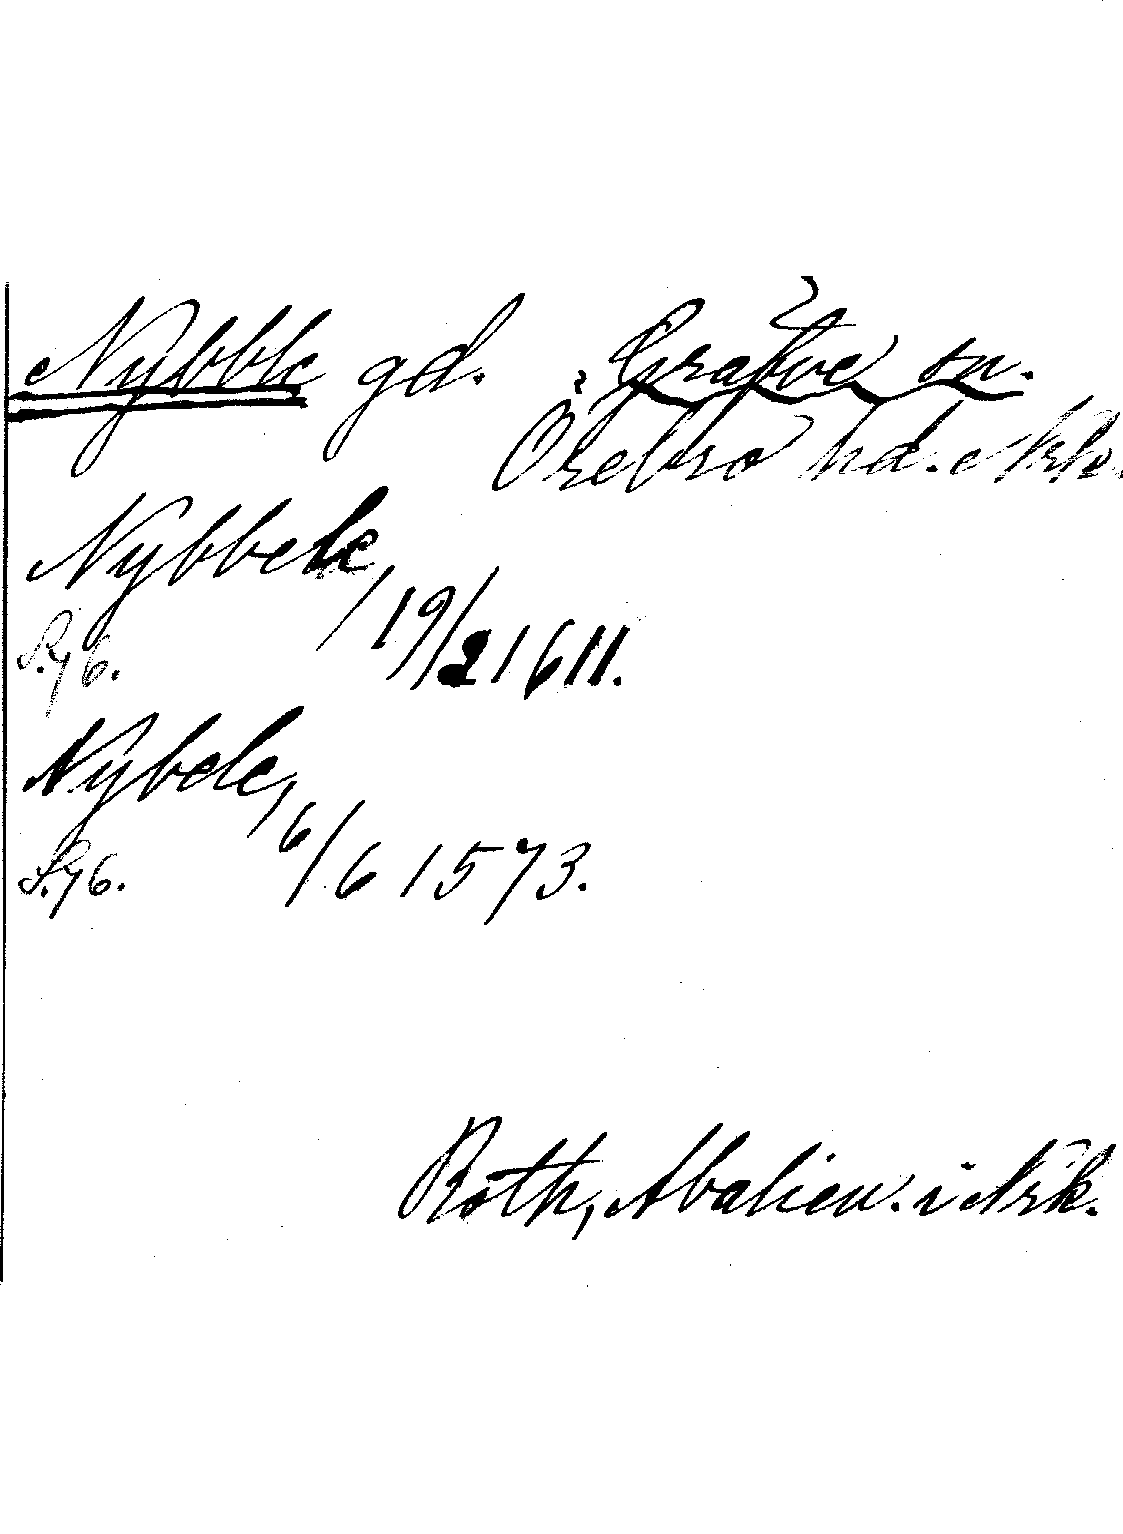 Nybble gd. Gräfve sn.
Örebro hd. Nrke.
Nybbele, 19/2 1611.
S. 76.
Nybele, 6/6 1573.
S. 76.
Roth, i Nrk.